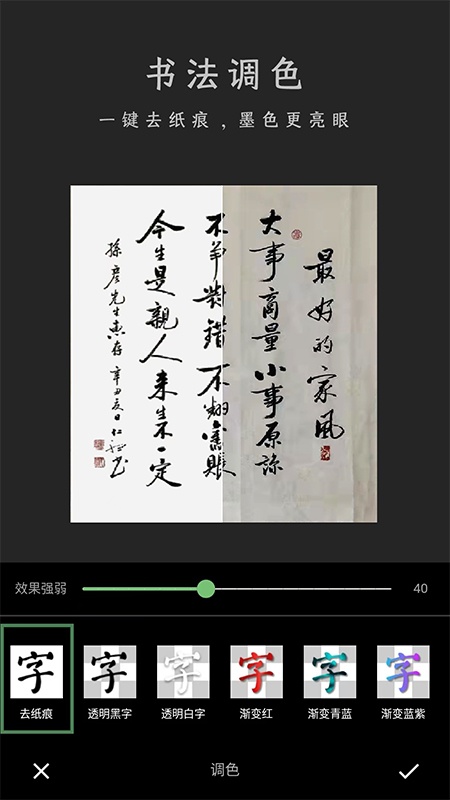 书法调色
一键去纸痕，墨色更亮眼
最好的家風
大事商量小事原諒
不争對錯不翻舊賬
今生是親人来生不一定
孫彦先生惠存 辛丑夏日仁
效果强弱
40
去纸痕
透明黑字
透明白字
渐变红
渐变青蓝
渐变蓝紫
字
字
字
字
字
字
调色